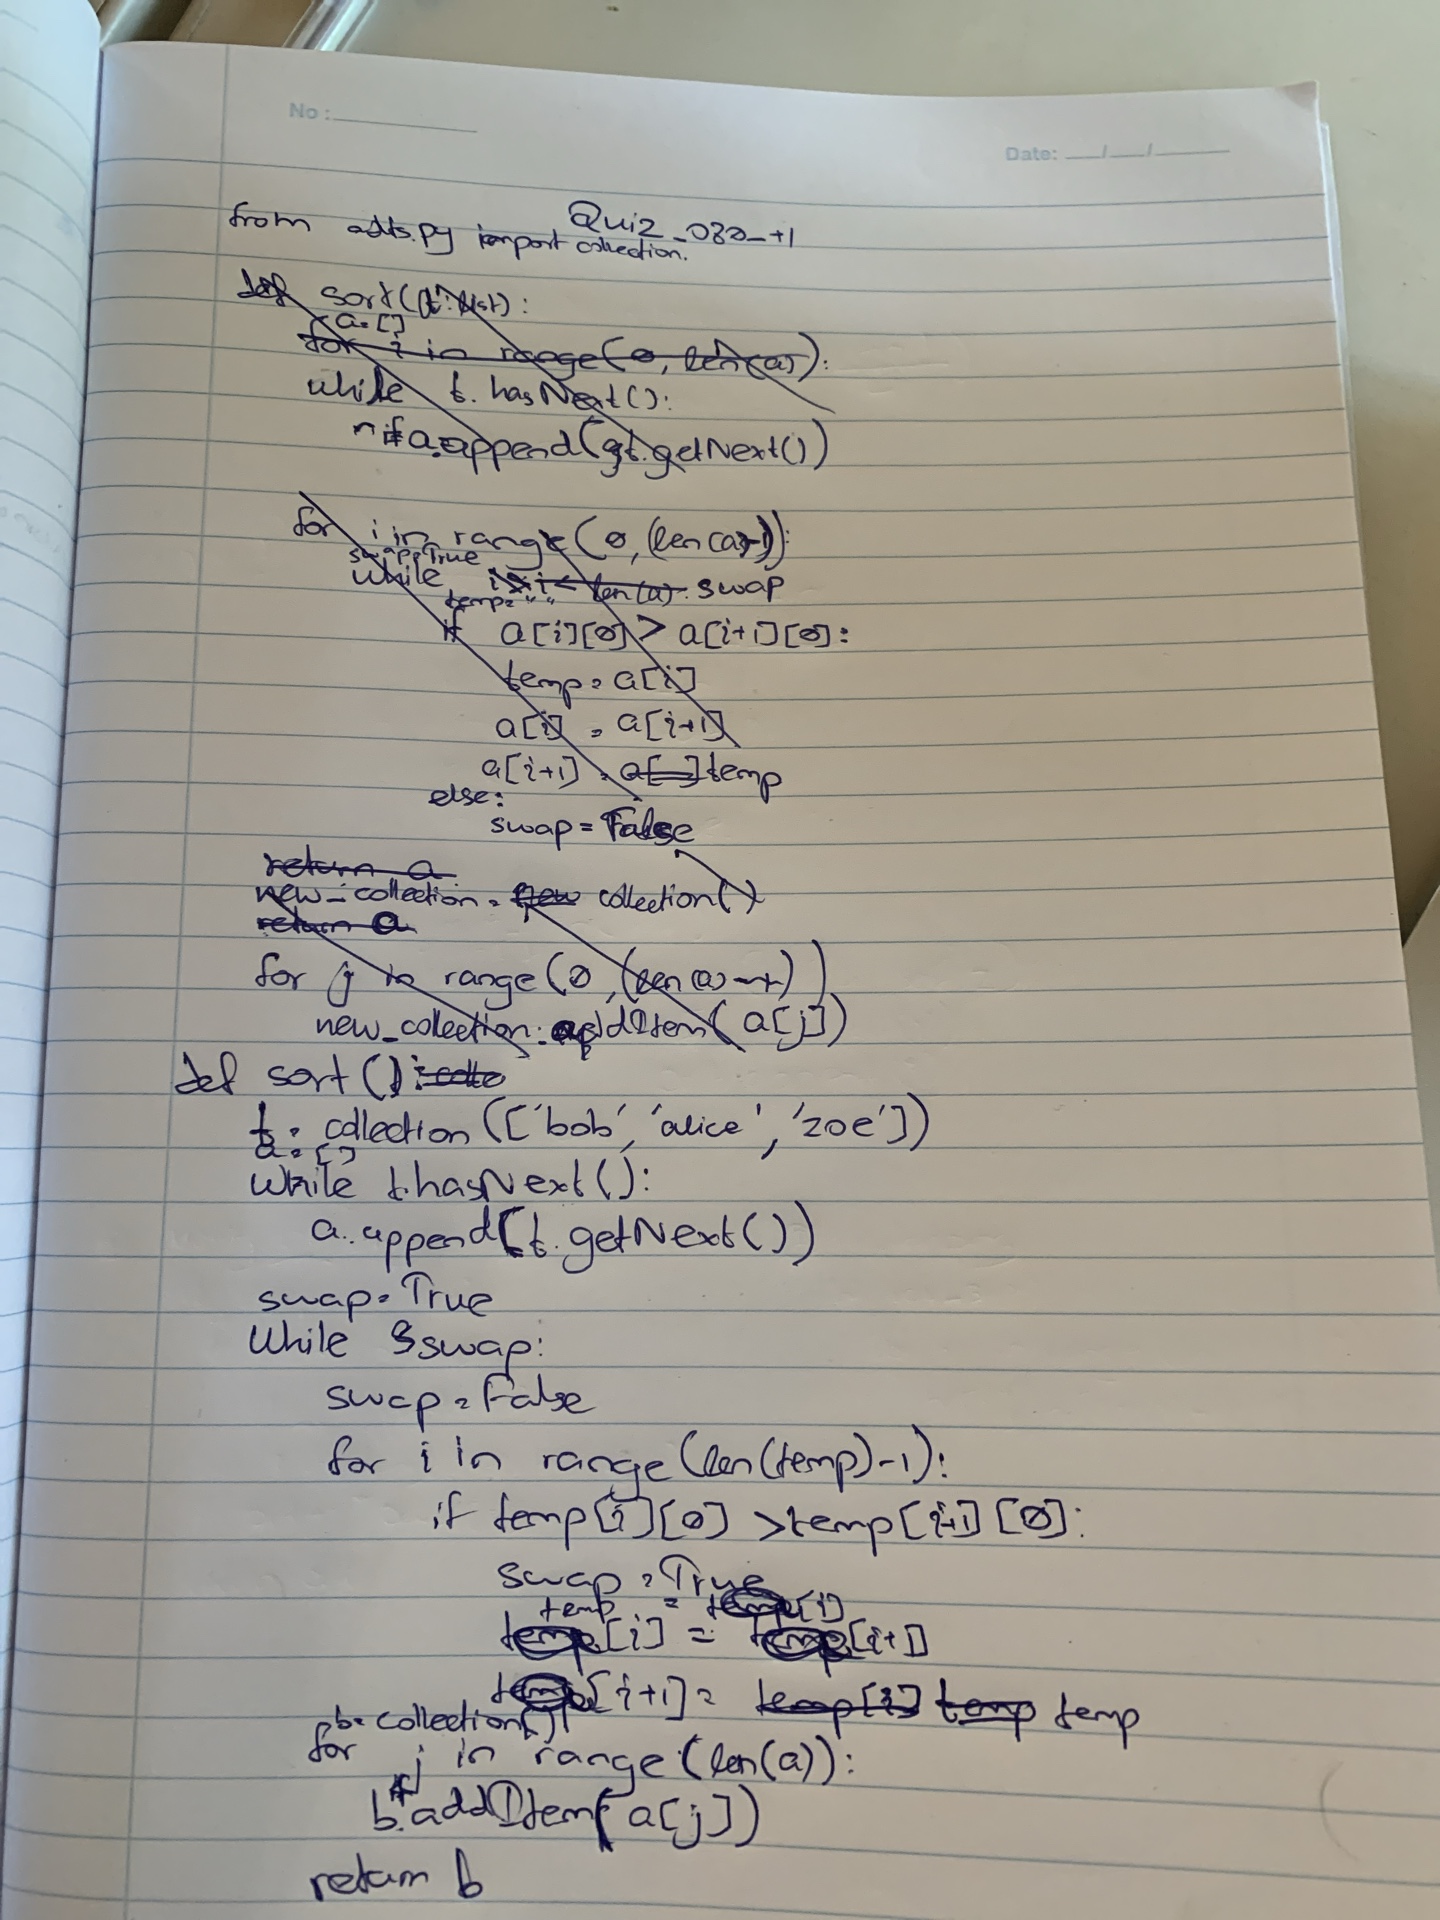 No :
Date: __/__/____
Quiz_030_+1
from adts.py import collection.
def sort(t: list):
a=[]
for i in range(0, len(a)):
while t.hasNext():
a.append(t.getNext())
for i in range(0,(len(a)-1)):
swap=True
while i < len(a): swap
temp=""
if a[i][0] > a[i+1][0]:
temp = a[i]
a[i] = a[i+1]
a[i+1] = a[ ] temp
else:
swap = False
return a
new_collection = new collection()
return a
for j in range(0,(len(a)-1))
new_collection.addItem(a[j])
def sort():
t = collection(['bob', 'alice', 'zoe'])
a = []
while t.hasNext():
a.append(t.getNext())
swap = True
While swap:
swap = False
for i in range(len(temp)-1):
if temp[i][0] > temp[i+1][0]:
swap = True
temp = temp[i]
temp[i] = temp[i+1]
temp[i+1] = temp[i] temp temp
b= collection()
for j in range(len(a)):
b.addItem(a[j])
return b